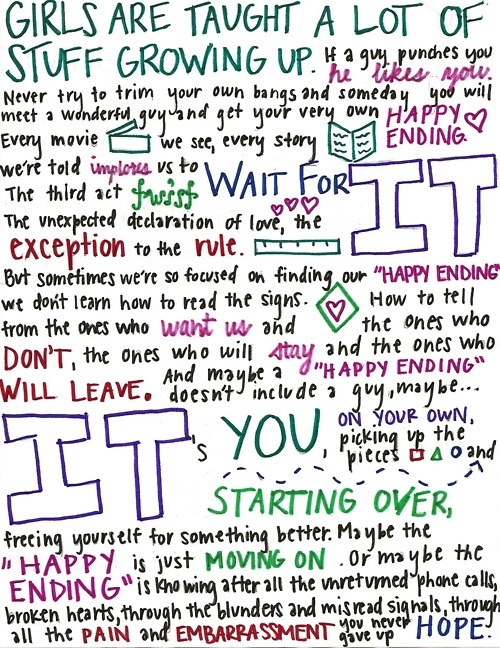 GIRLS ARE TAUGHT A LOT OF
STUFF GROWING UP. If a guy punches you
he likes you.
Never try to trim your own bangs and someday you will
meet a wonderful guy and get your very own HAPPY
ENDING.
Every movie we see, every story
we're told implores us to WAIT FOR IT
The third act twist
The unexpected declaration of love, the
exception to the rule.
But sometimes we're so focused on finding our "HAPPY ENDING"
we don't learn how to read the signs. How to tell
from the ones who want us and the ones who
DON'T, the ones who will stay and the ones who
WILL LEAVE. And maybe a "HAPPY ENDING"
doesn't include a guy, maybe...
IT's YOU, ON YOUR OWN,
picking up the
pieces and
STARTING OVER,
freeing yourself for something better. Maybe the
"HAPPY ENDING" is just MOVING ON. Or maybe the
is knowing after all the unreturned phone calls,
broken hearts, through the blunders and misread signals, through
all the PAIN and EMBARRASSMENT you never
gave up HOPE.